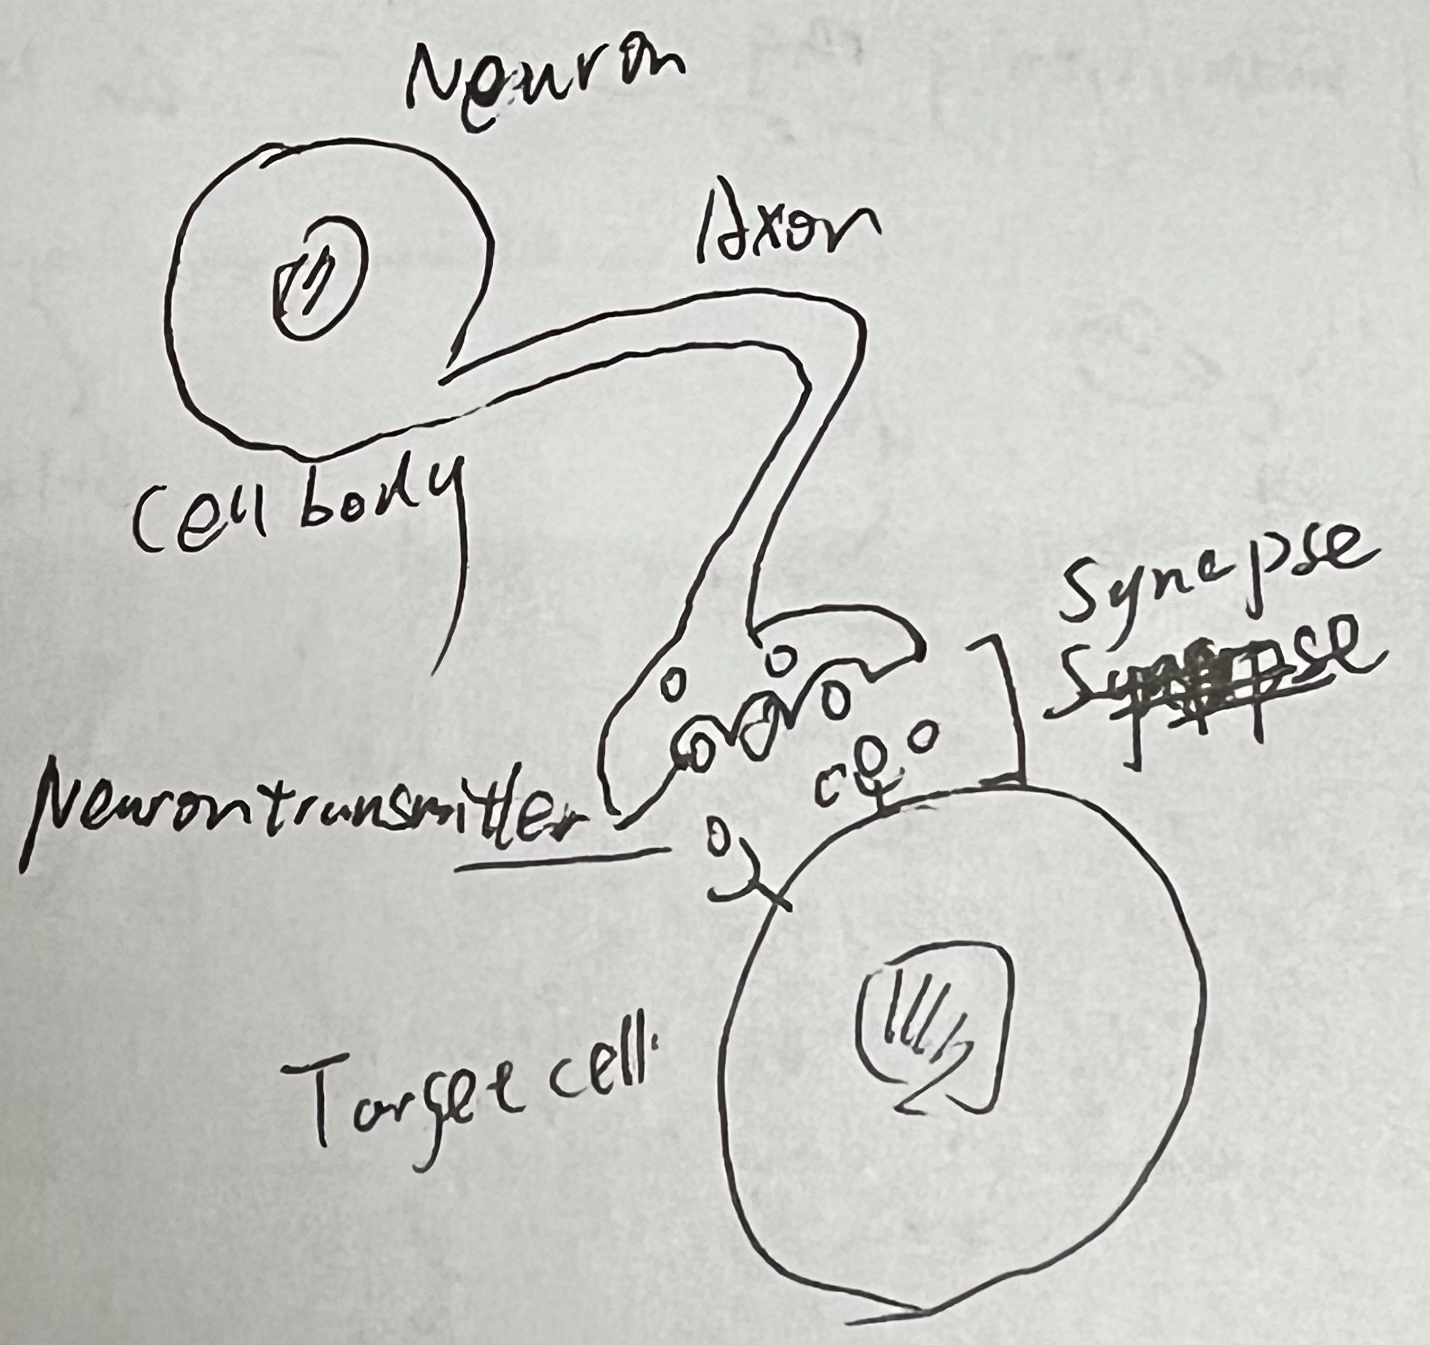 Neuron
Axon
Cell body
Synapse
Neurontransmitter
Target cell